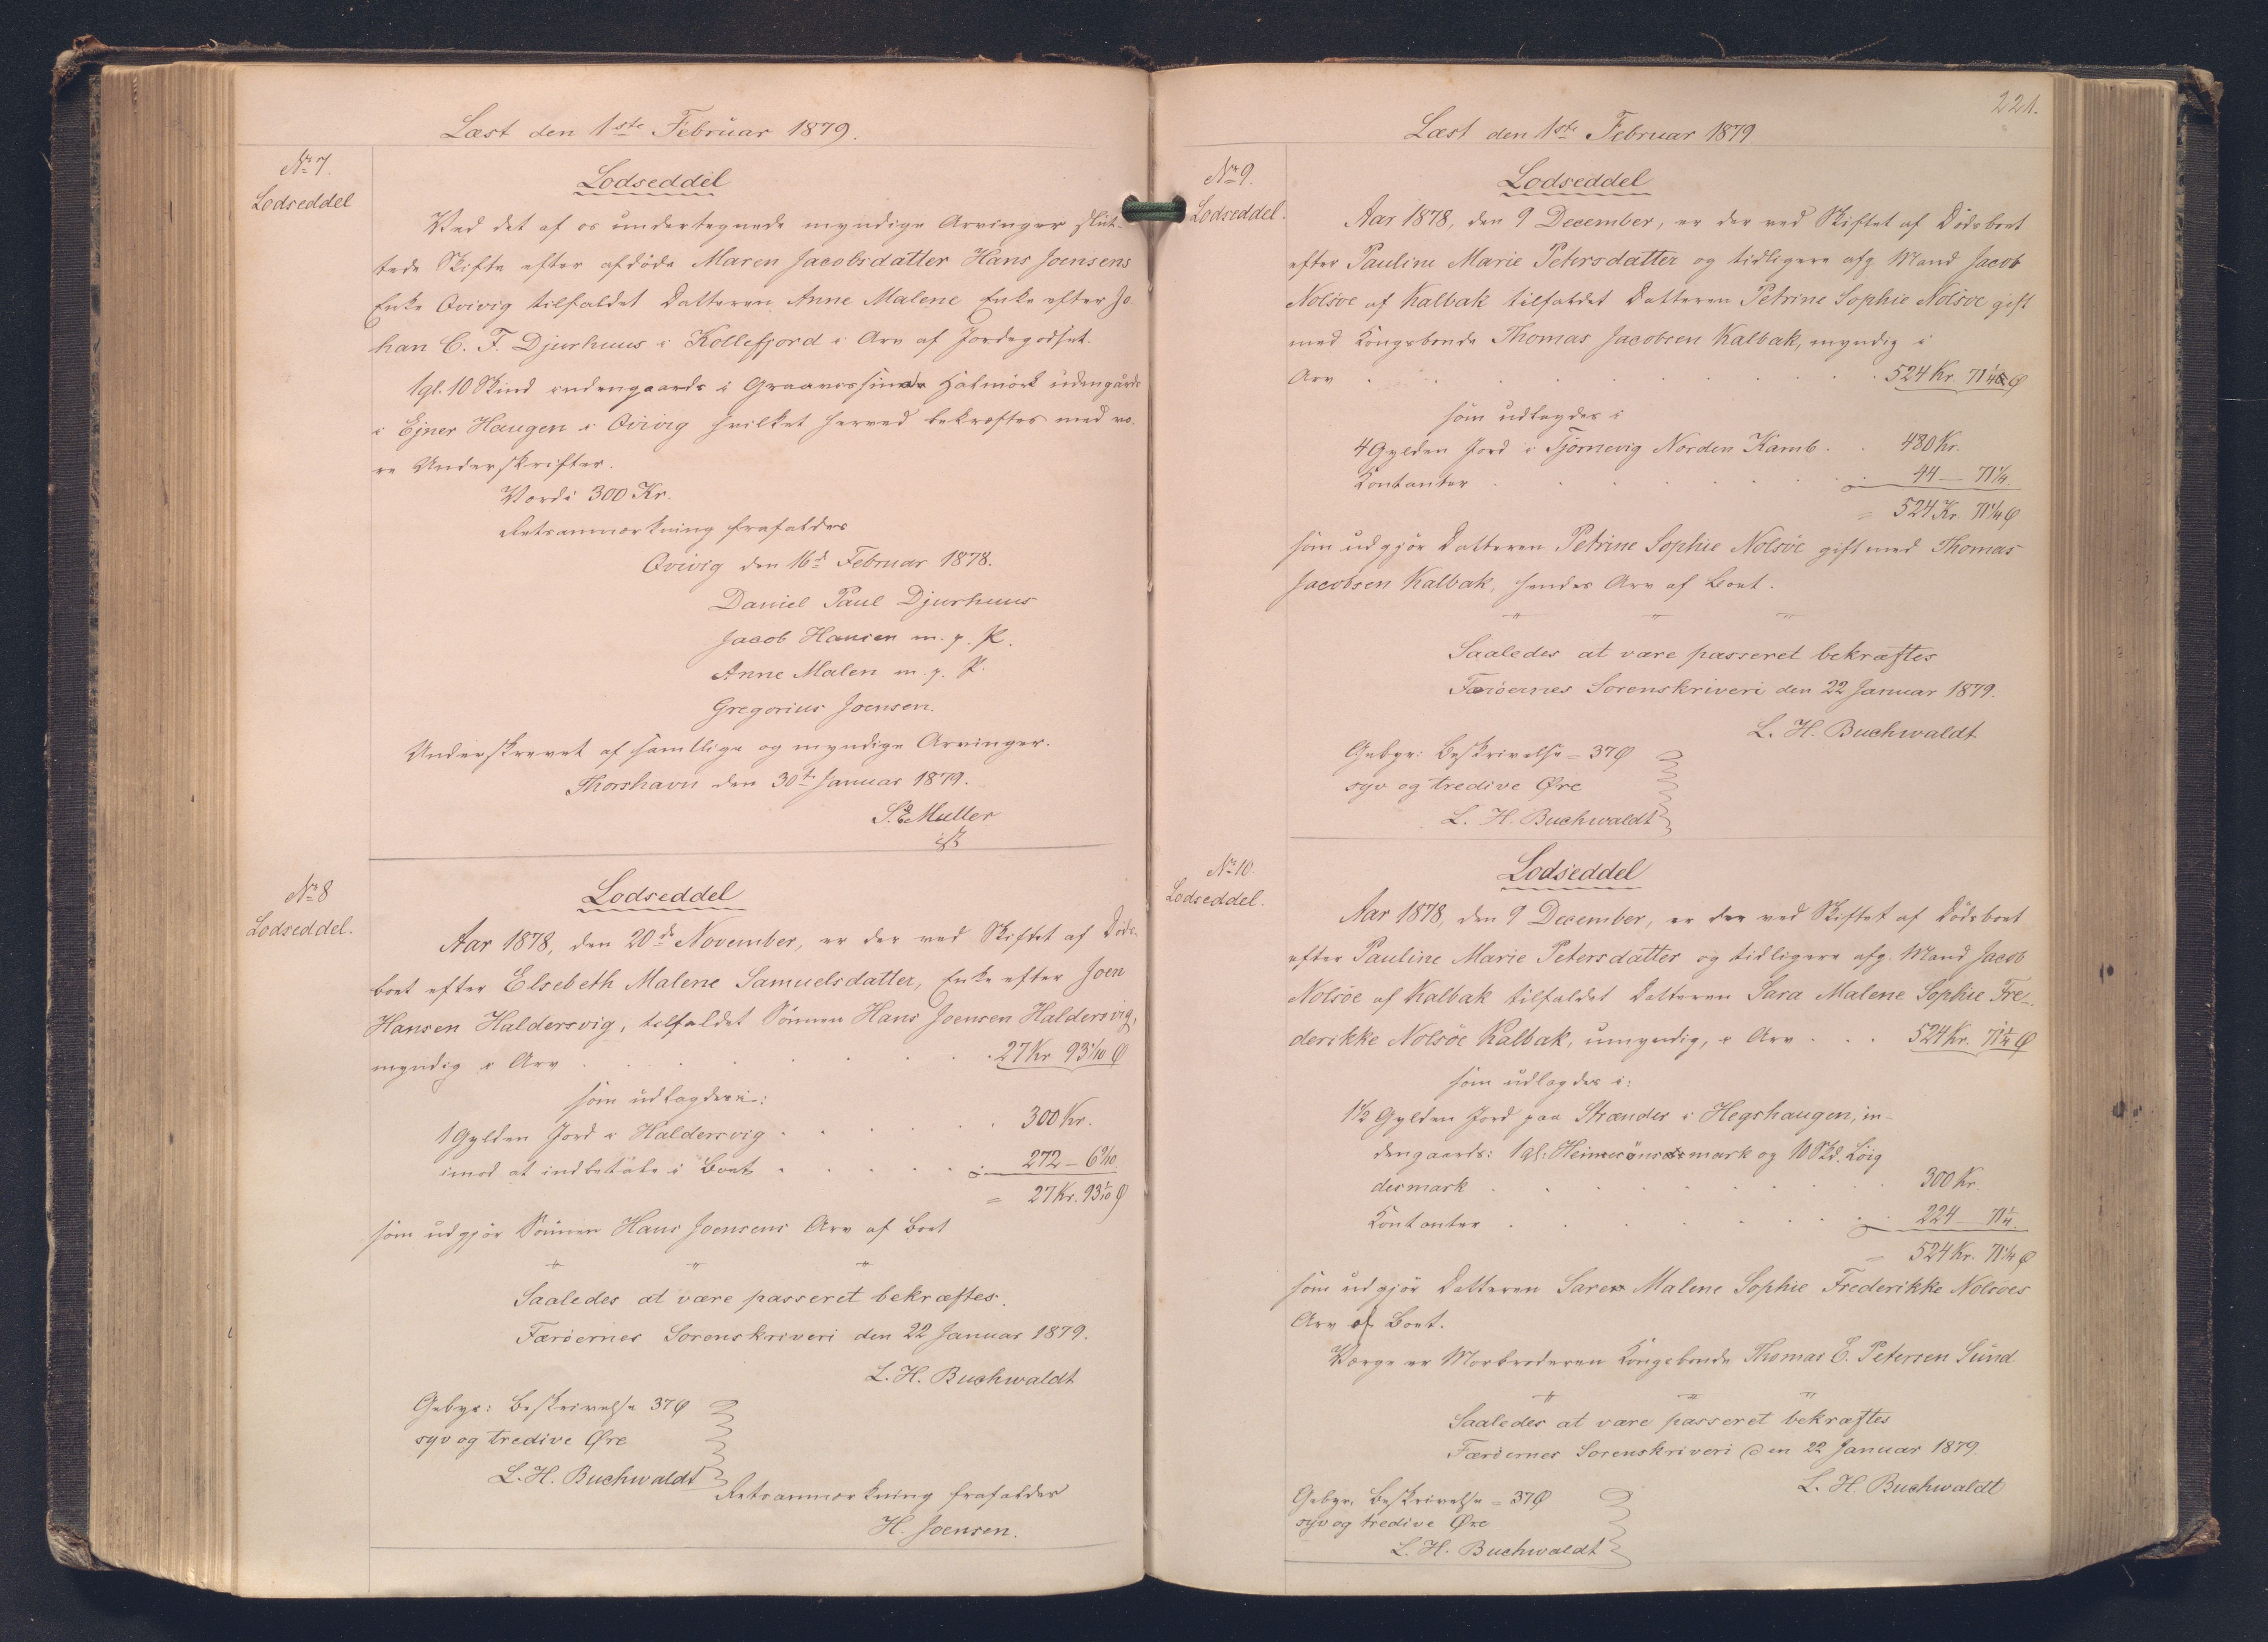 Læst den 1ste Februar 1879.
No 7.
Lodseddel
Lodseddel
Ved det af os undertegnede myndige Arvinger slut-
tede Skifte efter afdøde Maren Jacobsdatter Hans Joensens
Enke Qvivig tilfaldet Datteren Anne Malene Enke efter Jo
han C. F. Djurhuus i Kollefjord i Arv af Jordegodset.
1 gl. 10 Skind indengaards i Halmörk udengårds
i Ejner Haugen i Qvivig hvilket herved bekræftes med vo-
re Underskrifter.
Værdi 300 Kr.
Retsanmærkning frafaldes
Qvivig den 16d Februar 1878.
Daniel Paul Djurhuus
Jacob Hansen m. p. P.
Anne Malen m. p. P.
Gregorius Joensen.
Underskrevet af samtlige og myndige Arvinger.
Thorshavn den 30te Januar 1879.
S. E. Muller
No 8
Lodseddel.
Lodseddel
Aar 1878, den 20de November, er der ved Skiftet af Döds-
boet efter Elsebeth Malene Samuelsdatter, Enke efter Joen
Hansen Haldersvig, tilfaldet Sönnen Hans Joensen Haldersvig,
myndig i Arv . . . 27 Kr 93 1/10 Ø
som udlagdes i:
1 Gylden Jord i Haldersvig . . . 300 Kr.
imod at indbetale i Boet . . . ÷ 272 – 6 9/10
= 27 Kr. 93 1/10 Ø
som udgjör Sönnen Hans Joensens Arv af Boet
" " "
Saaledes at være passeret bekræftes.
Færöernes Sorenskriveri den 22 Januar 1879.
L. H. Buchwaldt
Gebyr: Beskrivelse 37 Ø
syv og tredive Øre
L. H. Buchwaldt
Retsanmærkning frafaldes
H. Joensen.
221.
Læst den 1ste Februar 1879.
No 9.
Lodseddel.
Lodseddel
Aar 1878, den 9 December, er der ved Skiftet af Dödsboet
efter Pauline Marie Petersdatter og tidligere afg. Mand Jacob
Nolsöe af Kalbak tilfaldet Datteren Petrine Sophie Nolsöe gift
med Kongsbonde Thomas Jacobsen Kalbak, myndig i
Arv . . . 524 Kr. 71 1/4 Ø
som udlagdes i
4 Gylden Jord i Tjörnevig Norden Kamb . . 480 Kr.
Kontanter . . . 44 – 71 1/4.
= 524 Kr 71 1/4 Ø
som udgjör Datteren Petrine Sophie Nolsöe gift med Thomas
Jacobsen Kalbak, hendes Arv af Boet.
" " "
Saaledes at være passeret bekræftes
Færöernes Sorenskriveri den 22 Januar 1879.
L. H. Buchwaldt
Gebyr: Beskrivelse = 37 Ø
syv og tredive Øre
L. H. Buchwaldt
No 10.
Lodseddel.
Lodseddel
Aar 1878, den 9 December, er der ved Skiftet af Dödsboet
efter Pauline Marie Petersdatter og tidligere afg. Mand Jacob
Nolsöe af Kalbak tilfaldet Datteren Sara Malene Sophie Fre-
derikke Nolsöe Kalbak, umyndig, i Arv . . . 524 Kr. 71 1/4 Ø
som udlagdes i:
1 1/2 Gylden Jord paa Strænder i Hegshaugen, in-
dengaards: 1 gl: og 10 Skd. Löig
desmark . . . 300 Kr.
Kontanter . . . 224 – 71 1/4.
= 524 Kr. 71 1/4 Ø
som udgjör Datteren Sara Malene Sophie Frederikke Nolsöes
Arv af Boet.
Værge er Morbroderen Kongsbonde Thomas E. Petersen Sund.
" " "
Saaledes at være passeret bekræftes
Færöernes Sorenskriveri den 22 Januar 1879.
L. H. Buchwaldt
Gebyr. Beskrivelse = 37 Ø
syv og tredive Øre
L. H. Buchwaldt